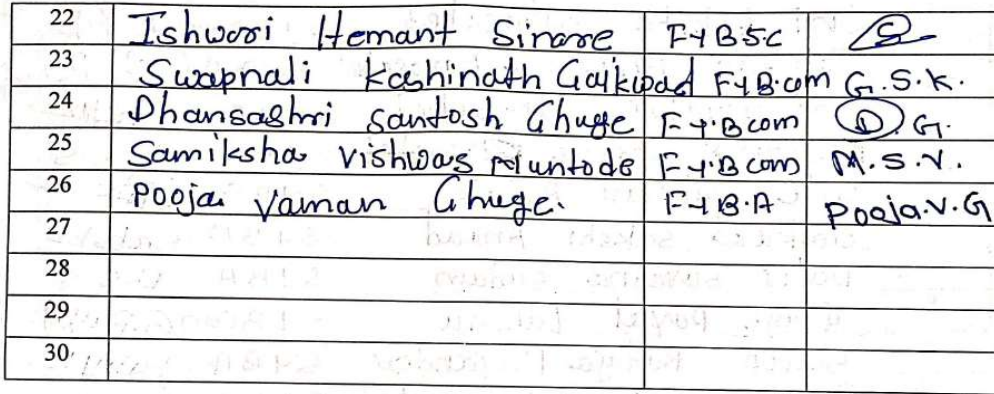 22 Ishwari Hemant Sinare FYBSC
23 Swapnali Kashinath Gaikwad FYB.com G.S.K.
24 Dhansashri Santosh Ghuge F.Y.Bcom D.G.
25 Samiksha Vishwas Muntode F.Y.Bcom M.S.V.
26 Pooja Vaman Ghuge. FYB.A Pooja.V.G
27
28
29
30